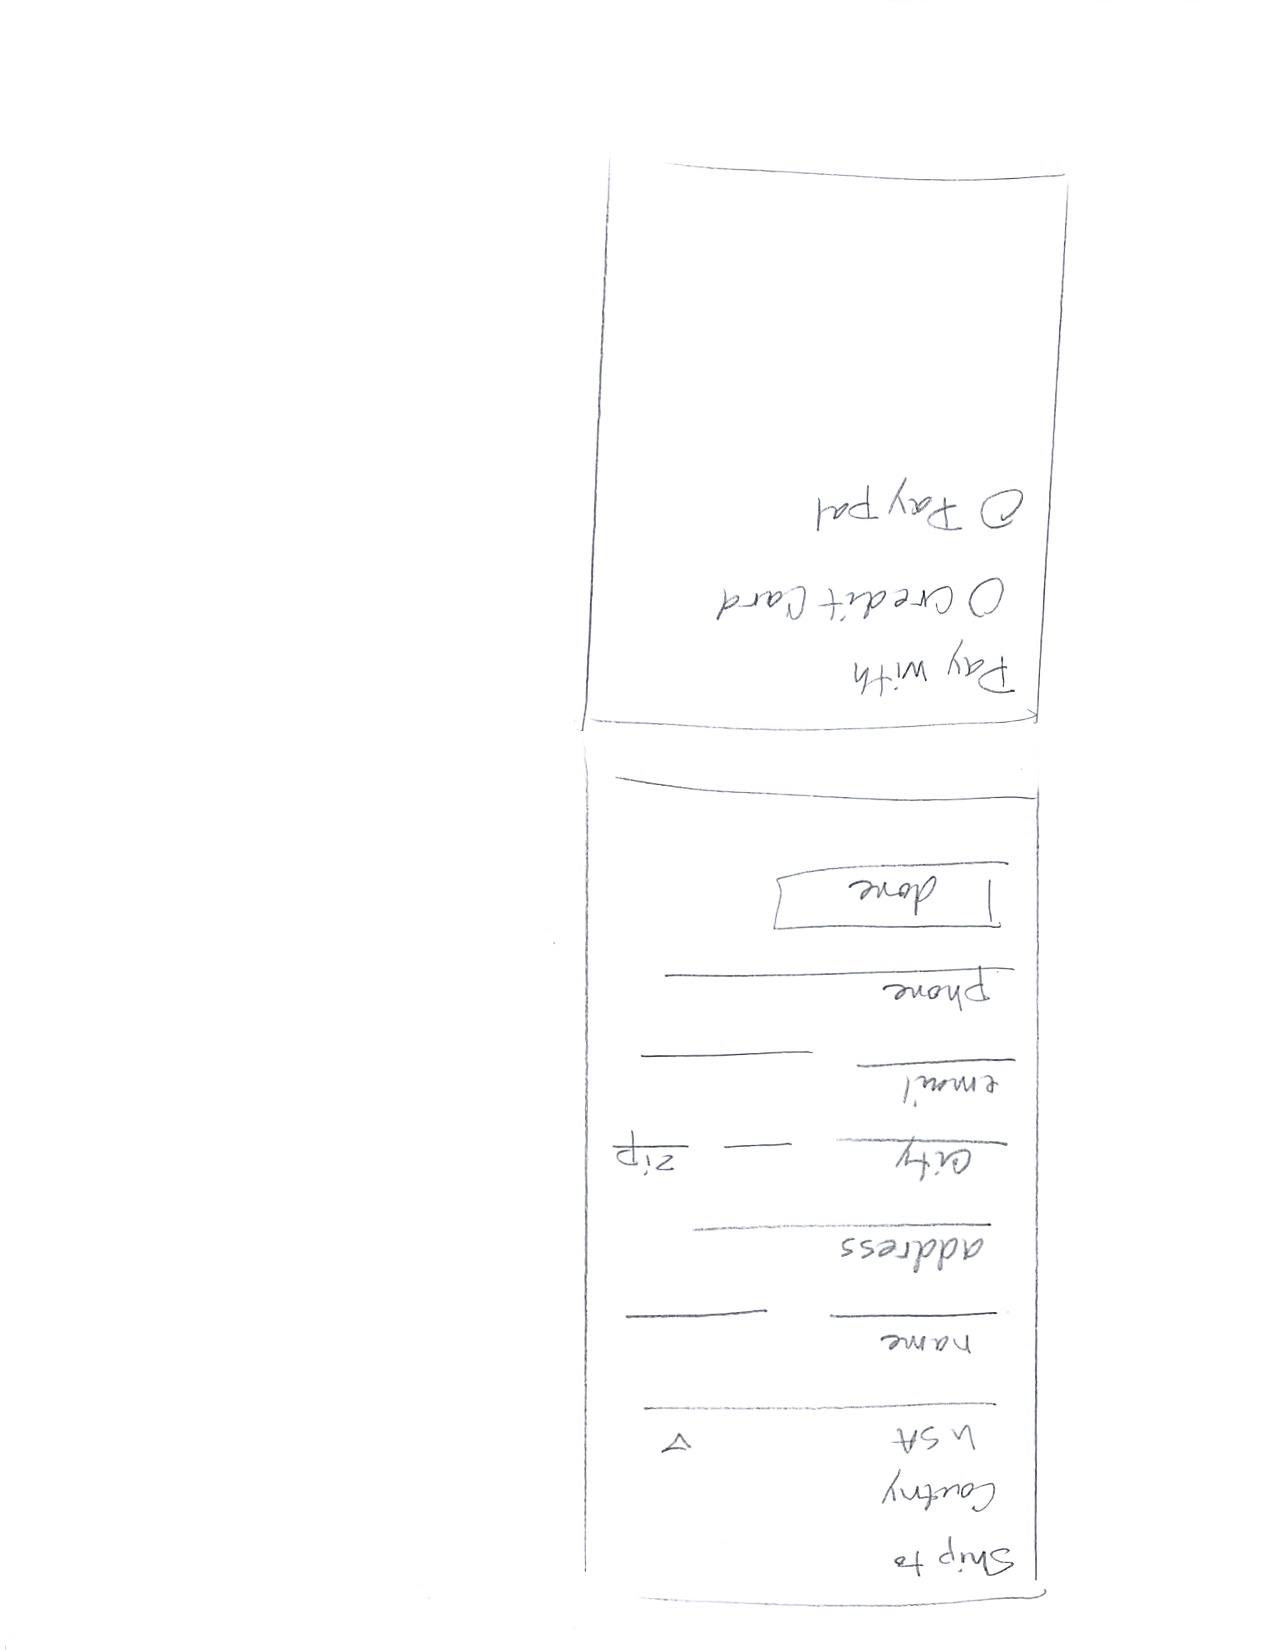 Ship to
Coutry
USA
name
address
city zip
email
phone
done
Pay with
Credit Card
Paypal